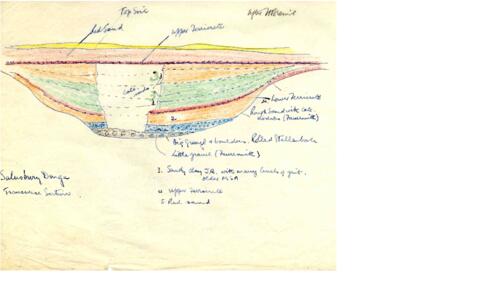 Top Soil
Red Sand
Upper Ferricrete
Calc
Lower Ferricrete
Rough Sand with Calc
nodules (Fauresmith)
2.
Big Gravel & boulders. Rolled Stellenbosch
Little gravel (Fauresmith)
Salisbury Donga
Transverse Section
1. Sandy clay with many bands of grit,
older MSA
4 Upper Ferricrete
5 Red Sand